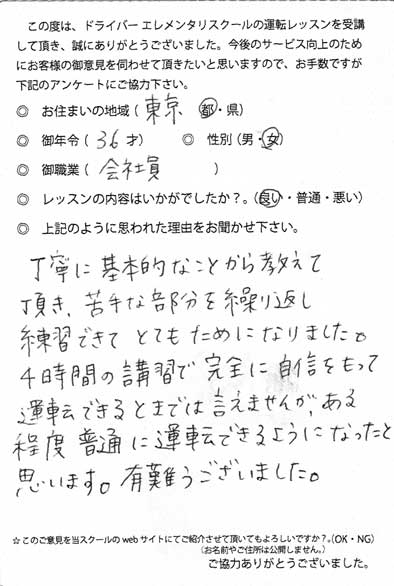 この度は、ドライバー エレメンタリスクールの運転レッスンを受講
して頂き、誠にありがとうございました。今後のサービス向上のため
にお客様の御意見を伺わせて頂きたいと思いますので、お手数ですが
下記のアンケートにご協力下さい。
◎ お住まいの地域 ( 東京 都・県)
◎ 御年令 ( 36 才) ◎ 性別 (男・女)
◎ 御職業 ( 会社員 )
◎ レッスンの内容はいかがでしたか？。(良い・普通・悪い)
◎ 上記のように思われた理由をお聞かせ下さい。
丁寧に基本的なことから教えて
頂き、苦手な部分を繰り返し
練習できて とてもためになりました。
4時間の講習で完全に自信をもって
運転できるとまでは言えませんが、ある
程度普通に運転できるようになったと
思います。有難うございました。
☆このご意見を当スクールの web サイトにてご紹介させて頂いてもよろしいですか？。(OK・NG)
(お名前やご住所は公開しません。)
ご協力ありがとうございました。